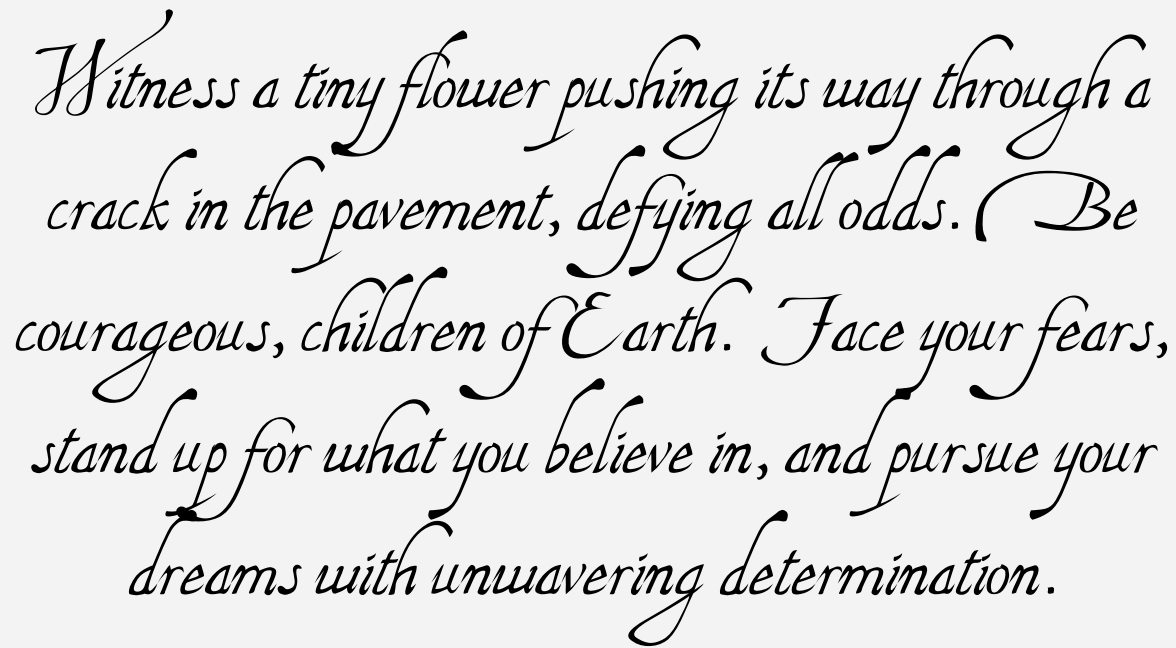 Witness a tiny flower pushing its way through a
crack in the pavement, defying all odds. Be
courageous, children of Earth. Face your fears,
stand up for what you believe in, and pursue your
dreams with unwavering determination.